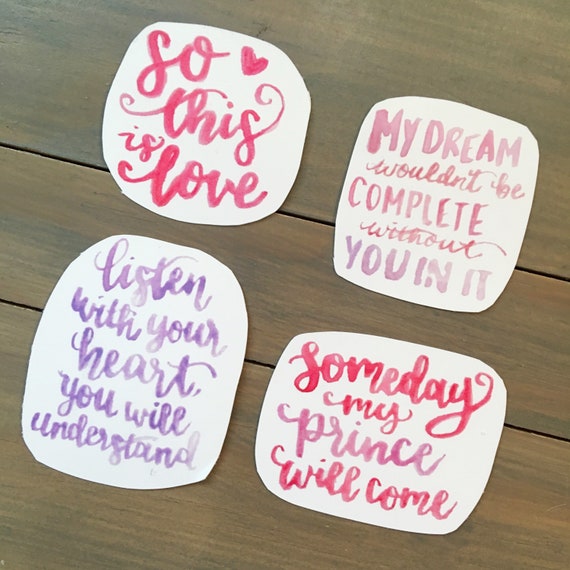 so
this
is
love
MY DREAM
wouldn't be
COMPLETE
without
YOU IN IT
listen
with your
heart,
you will
understand
someday
my
prince
will come